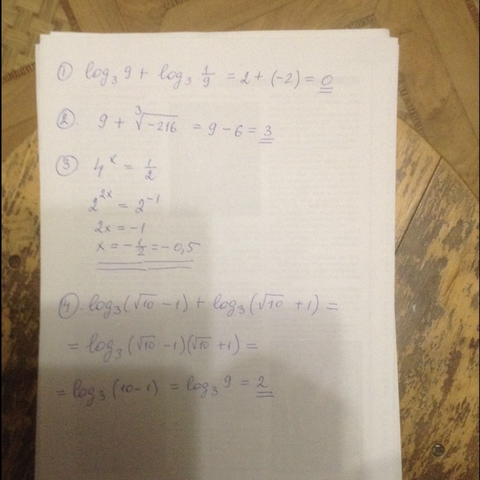 ① log₃ 9 + log₃ 1/9 = 2 + (-2) = 0
②. 9 + ∛-216 = 9 - 6 = 3
③ 4ˣ = 1/2
2²ˣ = 2⁻¹
2x = -1
x = -1/2 = -0,5
④. log₃(√10 - 1) + log₃(√10 + 1) =
= log₃(√10 - 1)(√10 + 1) =
= log₃(10-1) = log₃ 9 = 2